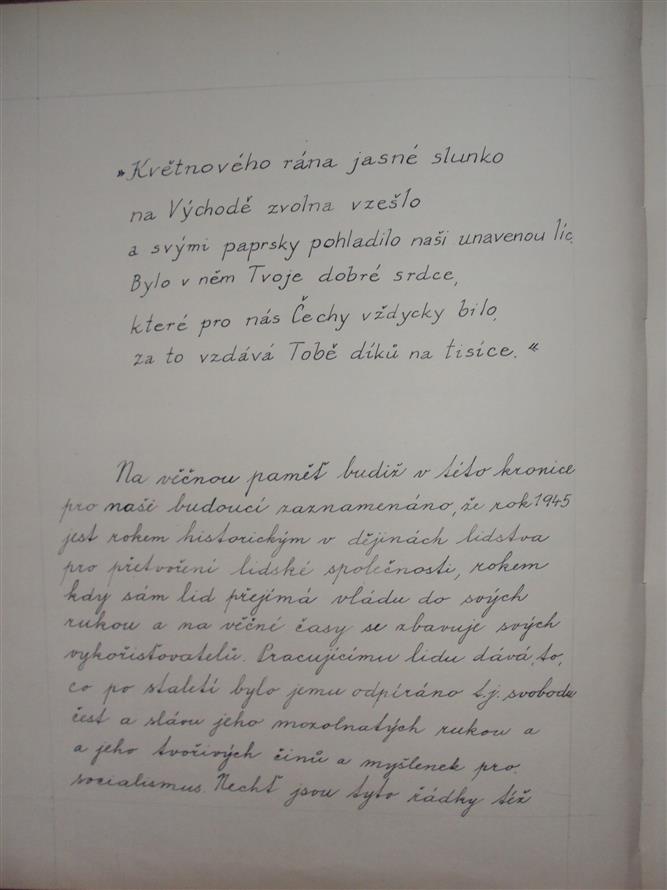 „Květnového rána jasné slunko
na Východě zvolna vzešlo
a svými paprsky pohladilo naši unavenou líc.
Bylo v něm Tvoje dobré srdce,
které pro nás Čechy vždycky bilo,
za to vzdává Tobě díků na tisíce."
Na věčnou paměť budiž v této kronice
pro naše budoucí zaznamenáno, že rok 1945
jest rokem historickým v dějinách lidstva
pro přetvoření lidské společnosti, rokem
kdy sám lid přejímá vládu do svých
rukou a na věčné časy se zbavuje svých
vykořisťovatelů. Pracujícímu lidu dává, to,
co po staletí bylo jemu odpíráno t.j. svobodu
čest a slávu jeho mozolnatých rukou a
a jeho tvořivých činů a myšlenek pro
socialismus. Nechť jsou tyto řádky též